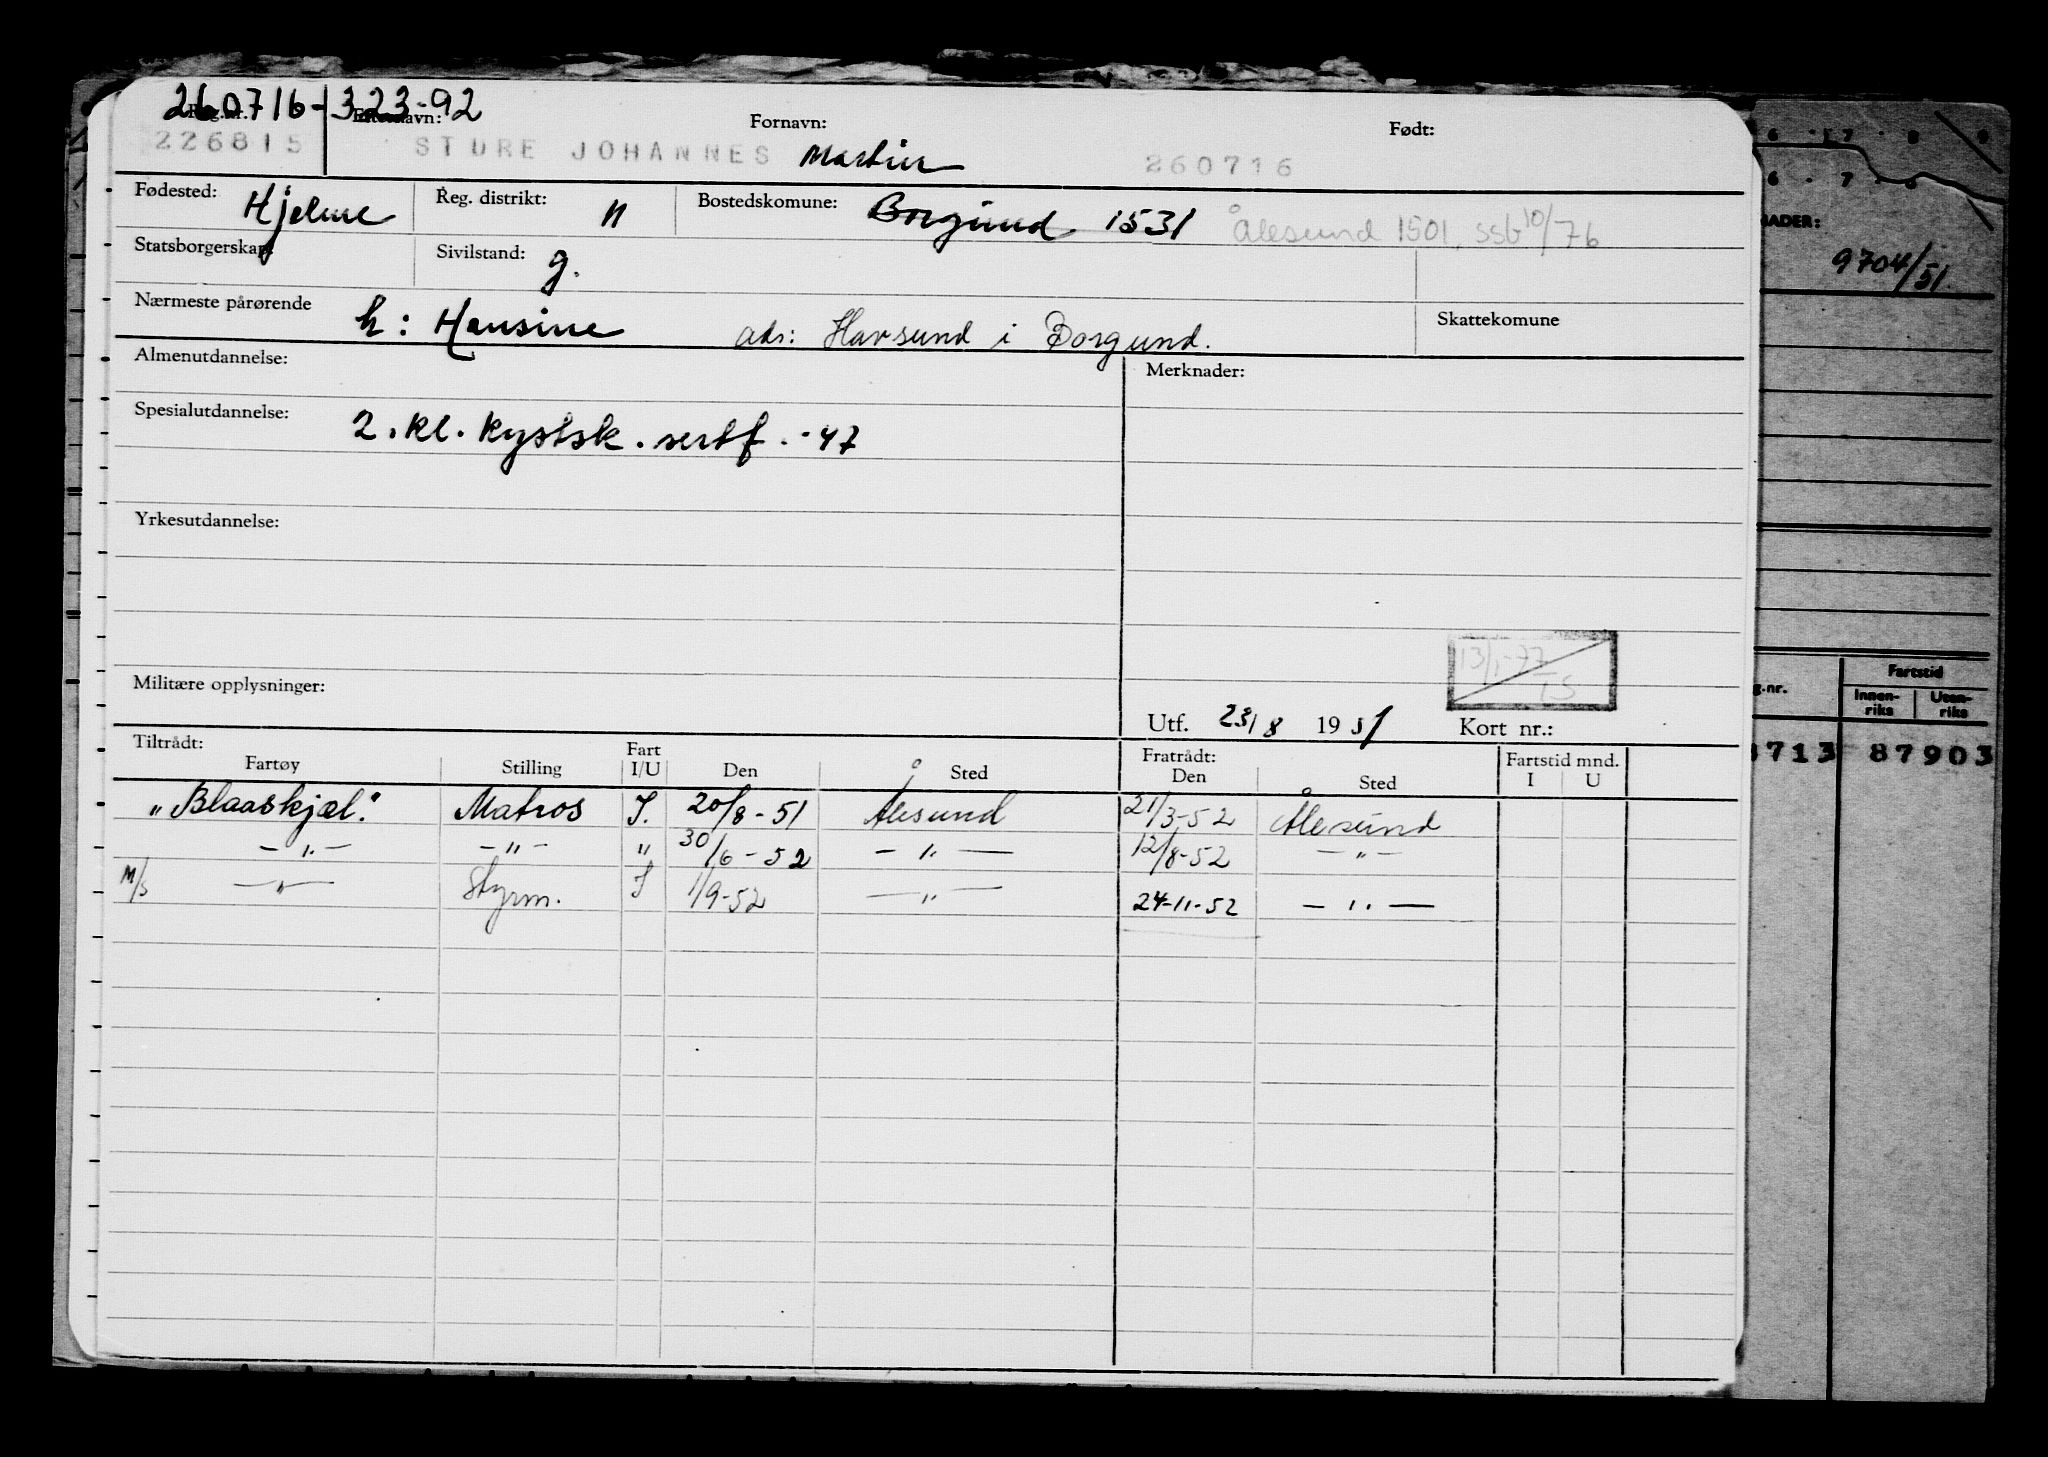 260716-32392
Reg.nr. Etternavn: Fornavn: Født:
226815 STURE JOHANNES Martin 260716
Fødested: Hjelme Reg. distrikt: N Bostedskomune: Borgund 1531 Ålesund 1501, ssb 10/76
Statsborgerskap: Sivilstand: g.
Nærmeste pårørende h: Hansine adr: Havsund i Borgund. Skattekomune
Almenutdannelse: Merknader:
Spesialutdannelse: 2. kl. kystsk. sertf. -47
Yrkesutdannelse:
13/1-77
Militære opplysninger:
Utf. 23/8 1951 Kort nr.:
Tiltrådt: Fratrådt: Fartstid mnd.
Fartøy Stilling Fart I/U Den Sted Den Sted I U
"Blaaskjæl." Matros I. 20/8-51 Ålesund 21/3-52 Ålesund
-"- -"- " 30/6-52 -"- 12/8-52 -"-
M/S -"- Styrm. I 1/9-52 -"- 24-11-52 -"-
6 . 7 . 8 . 9
6 . 7 . 8
NADER:
9704/51.
g.nr. Fartstid
Innen-riks Uten-riks
713 87903